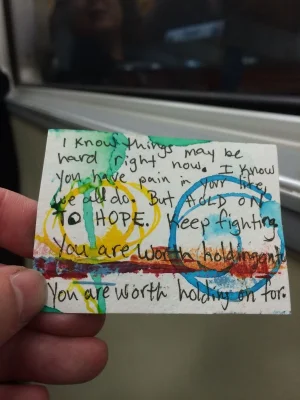 I know things may be
hard right now. I know
you have pain in your life,
we all do. But HOLD ON
TO HOPE. Keep fighting.
You are worth holding onto
You are worth holding on for.